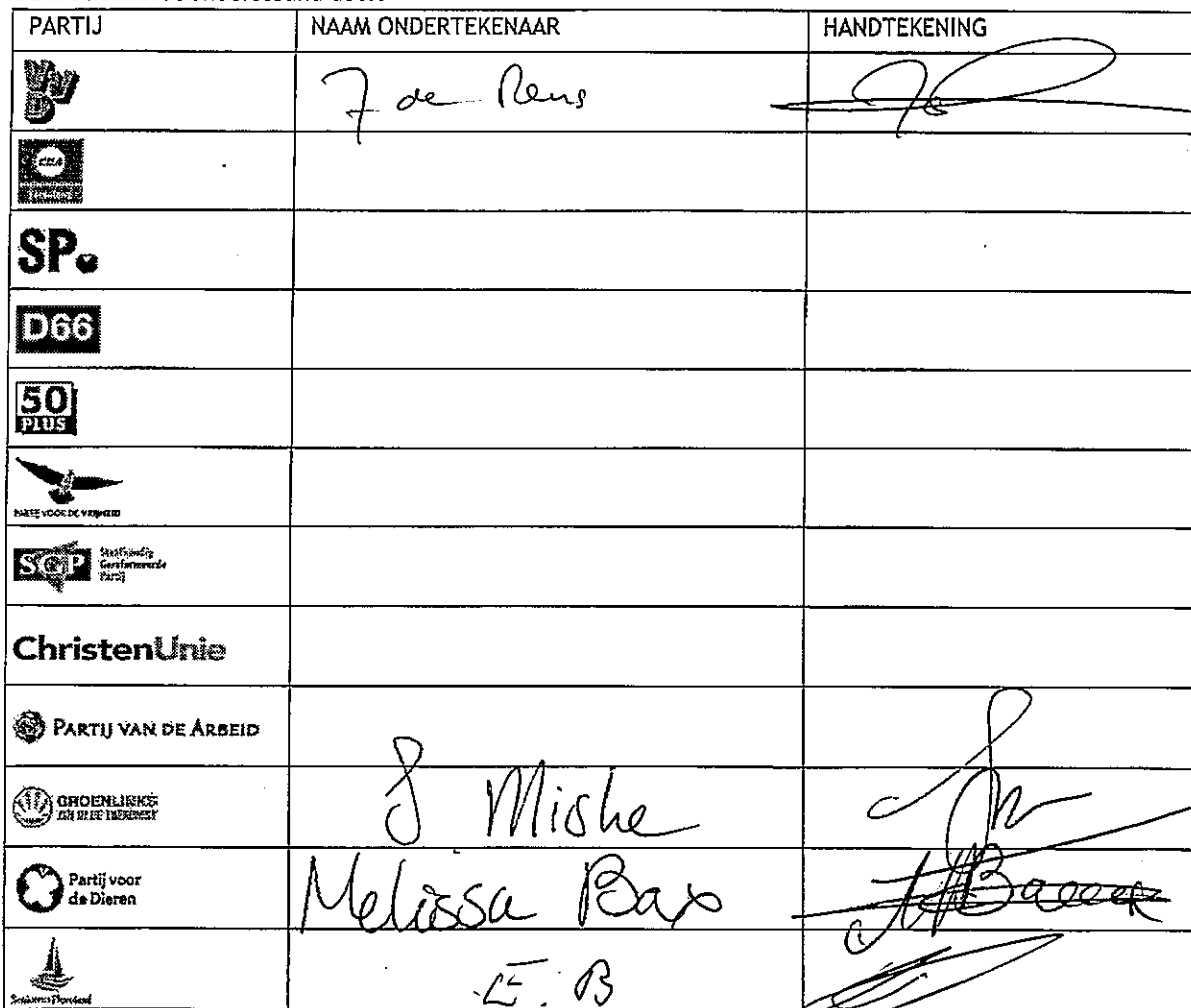 PARTIJ NAAM ONDERTEKENAAR HANDTEKENING
VVD de
CDA
SP.
D66
50
PLUS
PARTIJ VOOR DE VRIJHEID
SGP Staatkundig
Gereformeerde
Partij
ChristenUnie
PARTIJ VAN DE ARBEID
GROENLINKS
Partij voor
de Dieren
Melissa Bax
E. B